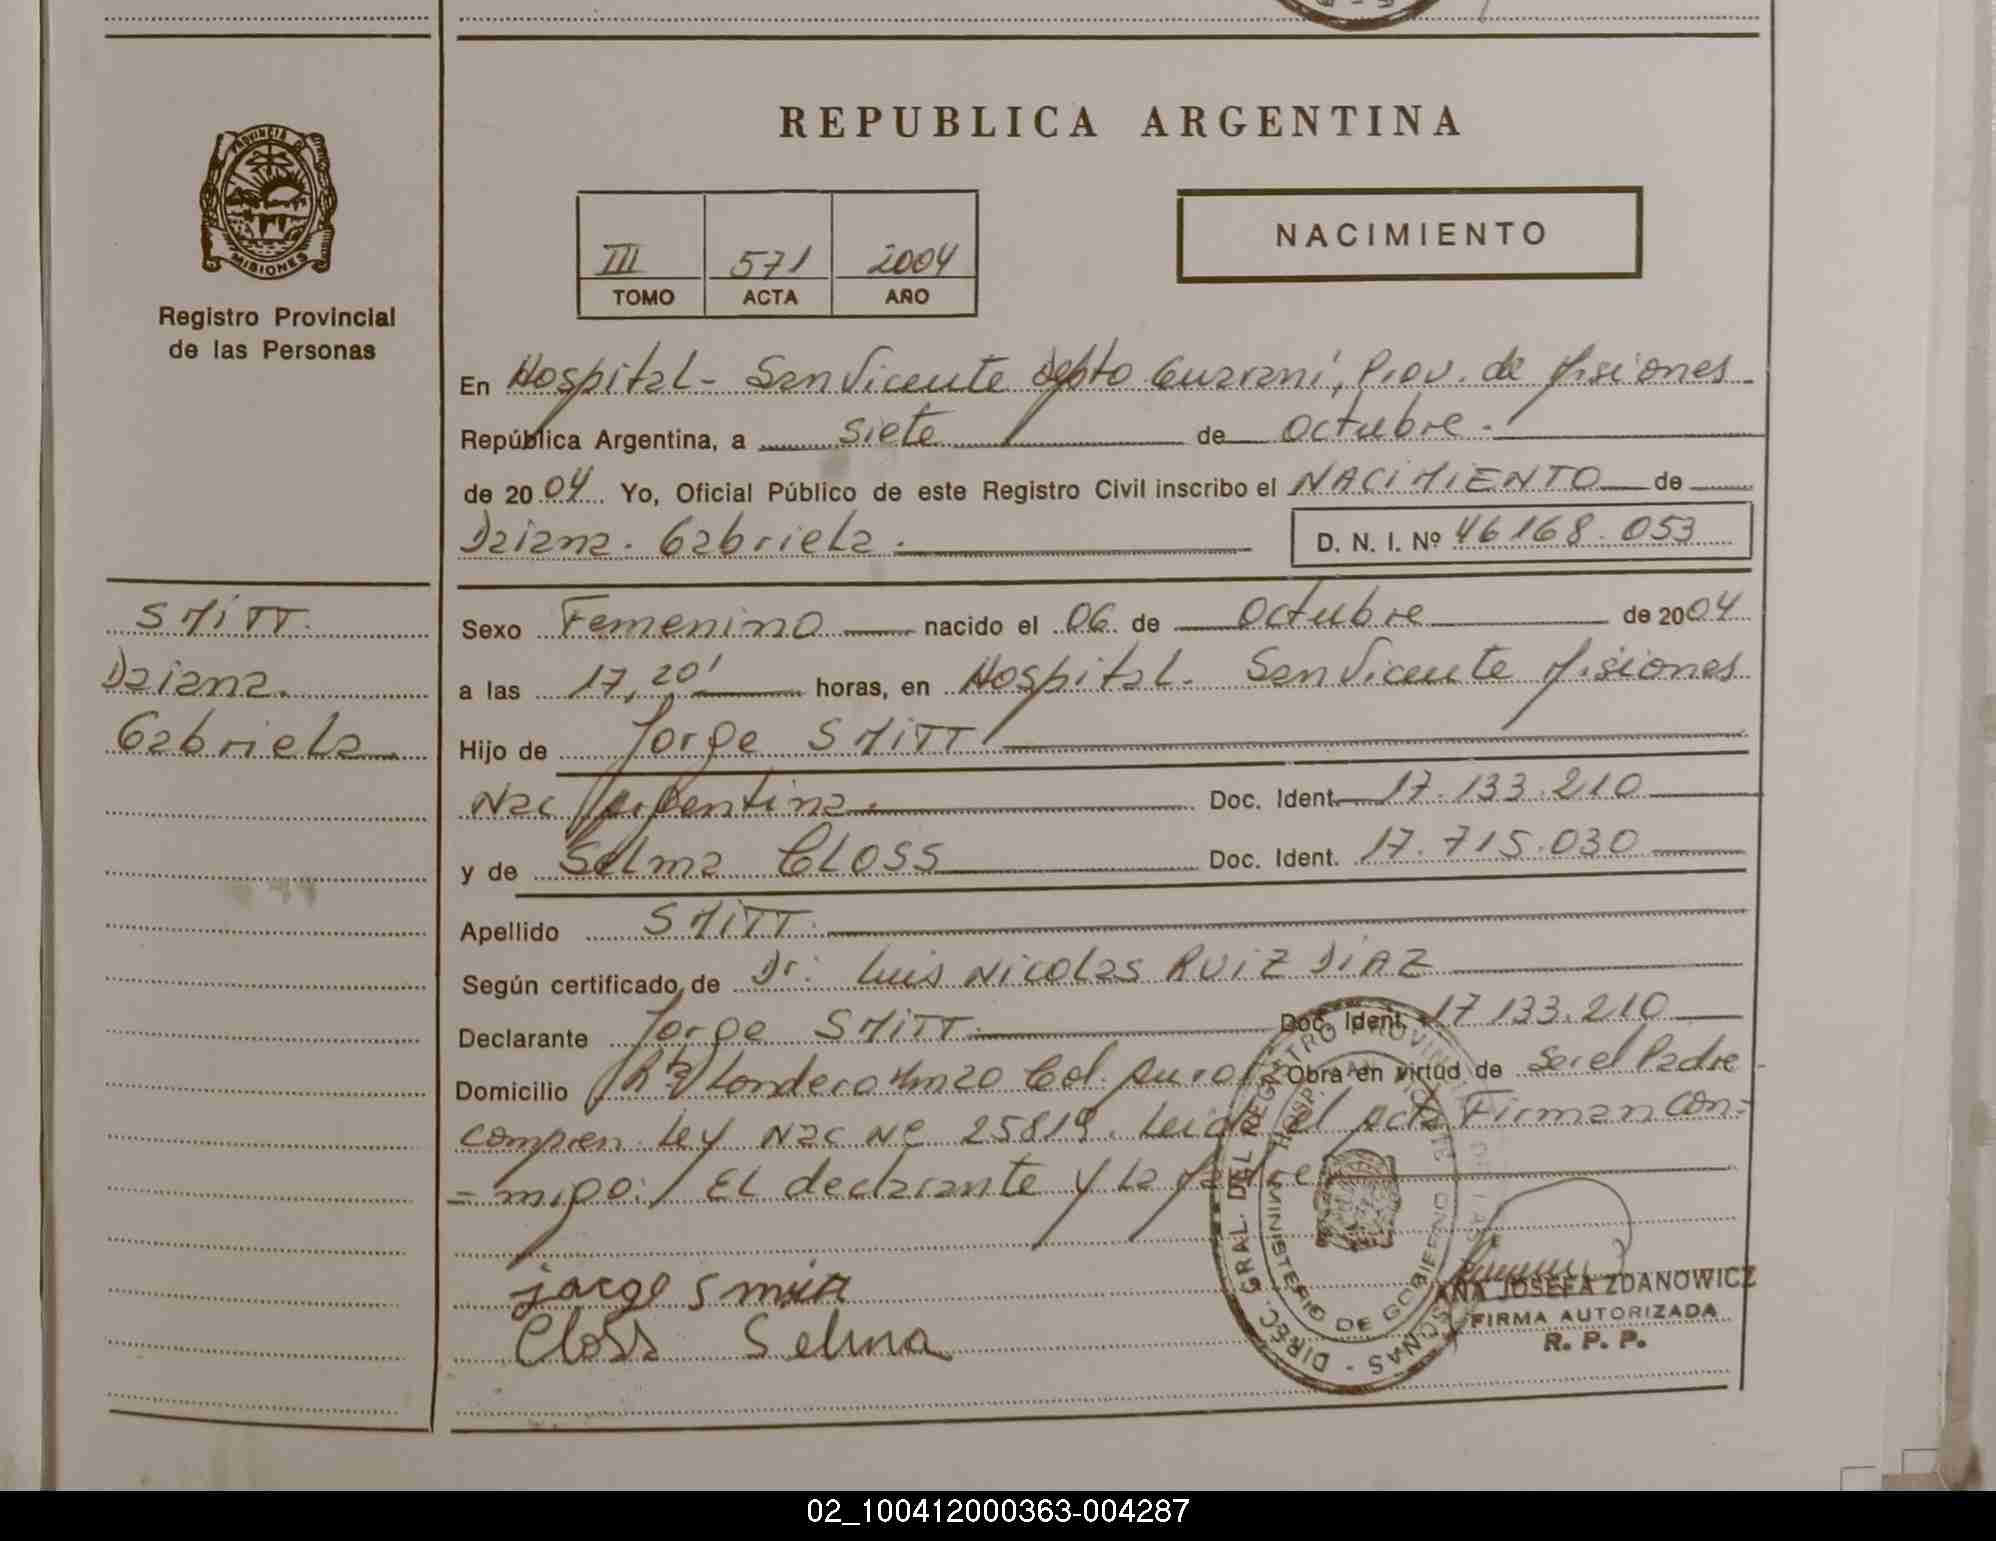 REPUBLICA ARGENTINA
PROVINCIA DE
MISIONES
Registro Provincial
de las Personas
III 571 2004
TOMO ACTA AÑO
NACIMIENTO
En Hospital - San Vicente Depto Guarani, Prov. de Misiones
República Argentina, a siete de octubre.
de 2004 Yo, Oficial Público de este Registro Civil inscribo el NACIMIENTO de
Daiana. Gabriela. D. N. I. Nº 46168.053
SMITT.
Daiana.
Gabriela
Sexo Femenino nacido el 06 de Octubre de 2004
a las 17,20' horas, en Hospital. San Vicente Misiones
Hijo de Jorge SMITT
Nac Argentina. Doc. Ident. 17.133.210
y de Selma CLOSS Doc. Ident. 17.715.030
Apellido SMITT.
Según certificado de Dr: Luis Nicolas RUIZ DIAZ
Declarante Jorge SMITT. Doc. Ident. 17 133.210
Domicilio Londero Km 20 Col. Obra en virtud de Ser el Padre
Ley Nac Nº 25819. Leida el acta Firman con=
=migo: El declarante y la Madre
jorge smitt
Closs Selma
DIREC. GRAL. DEL REGISTRO PROVINCIAL
MINISTERIO DE GOBIERNO
ANA JOSEFA ZDANOWICZ
FIRMA AUTORIZADA
R. P. P.
02_100412000363-004287